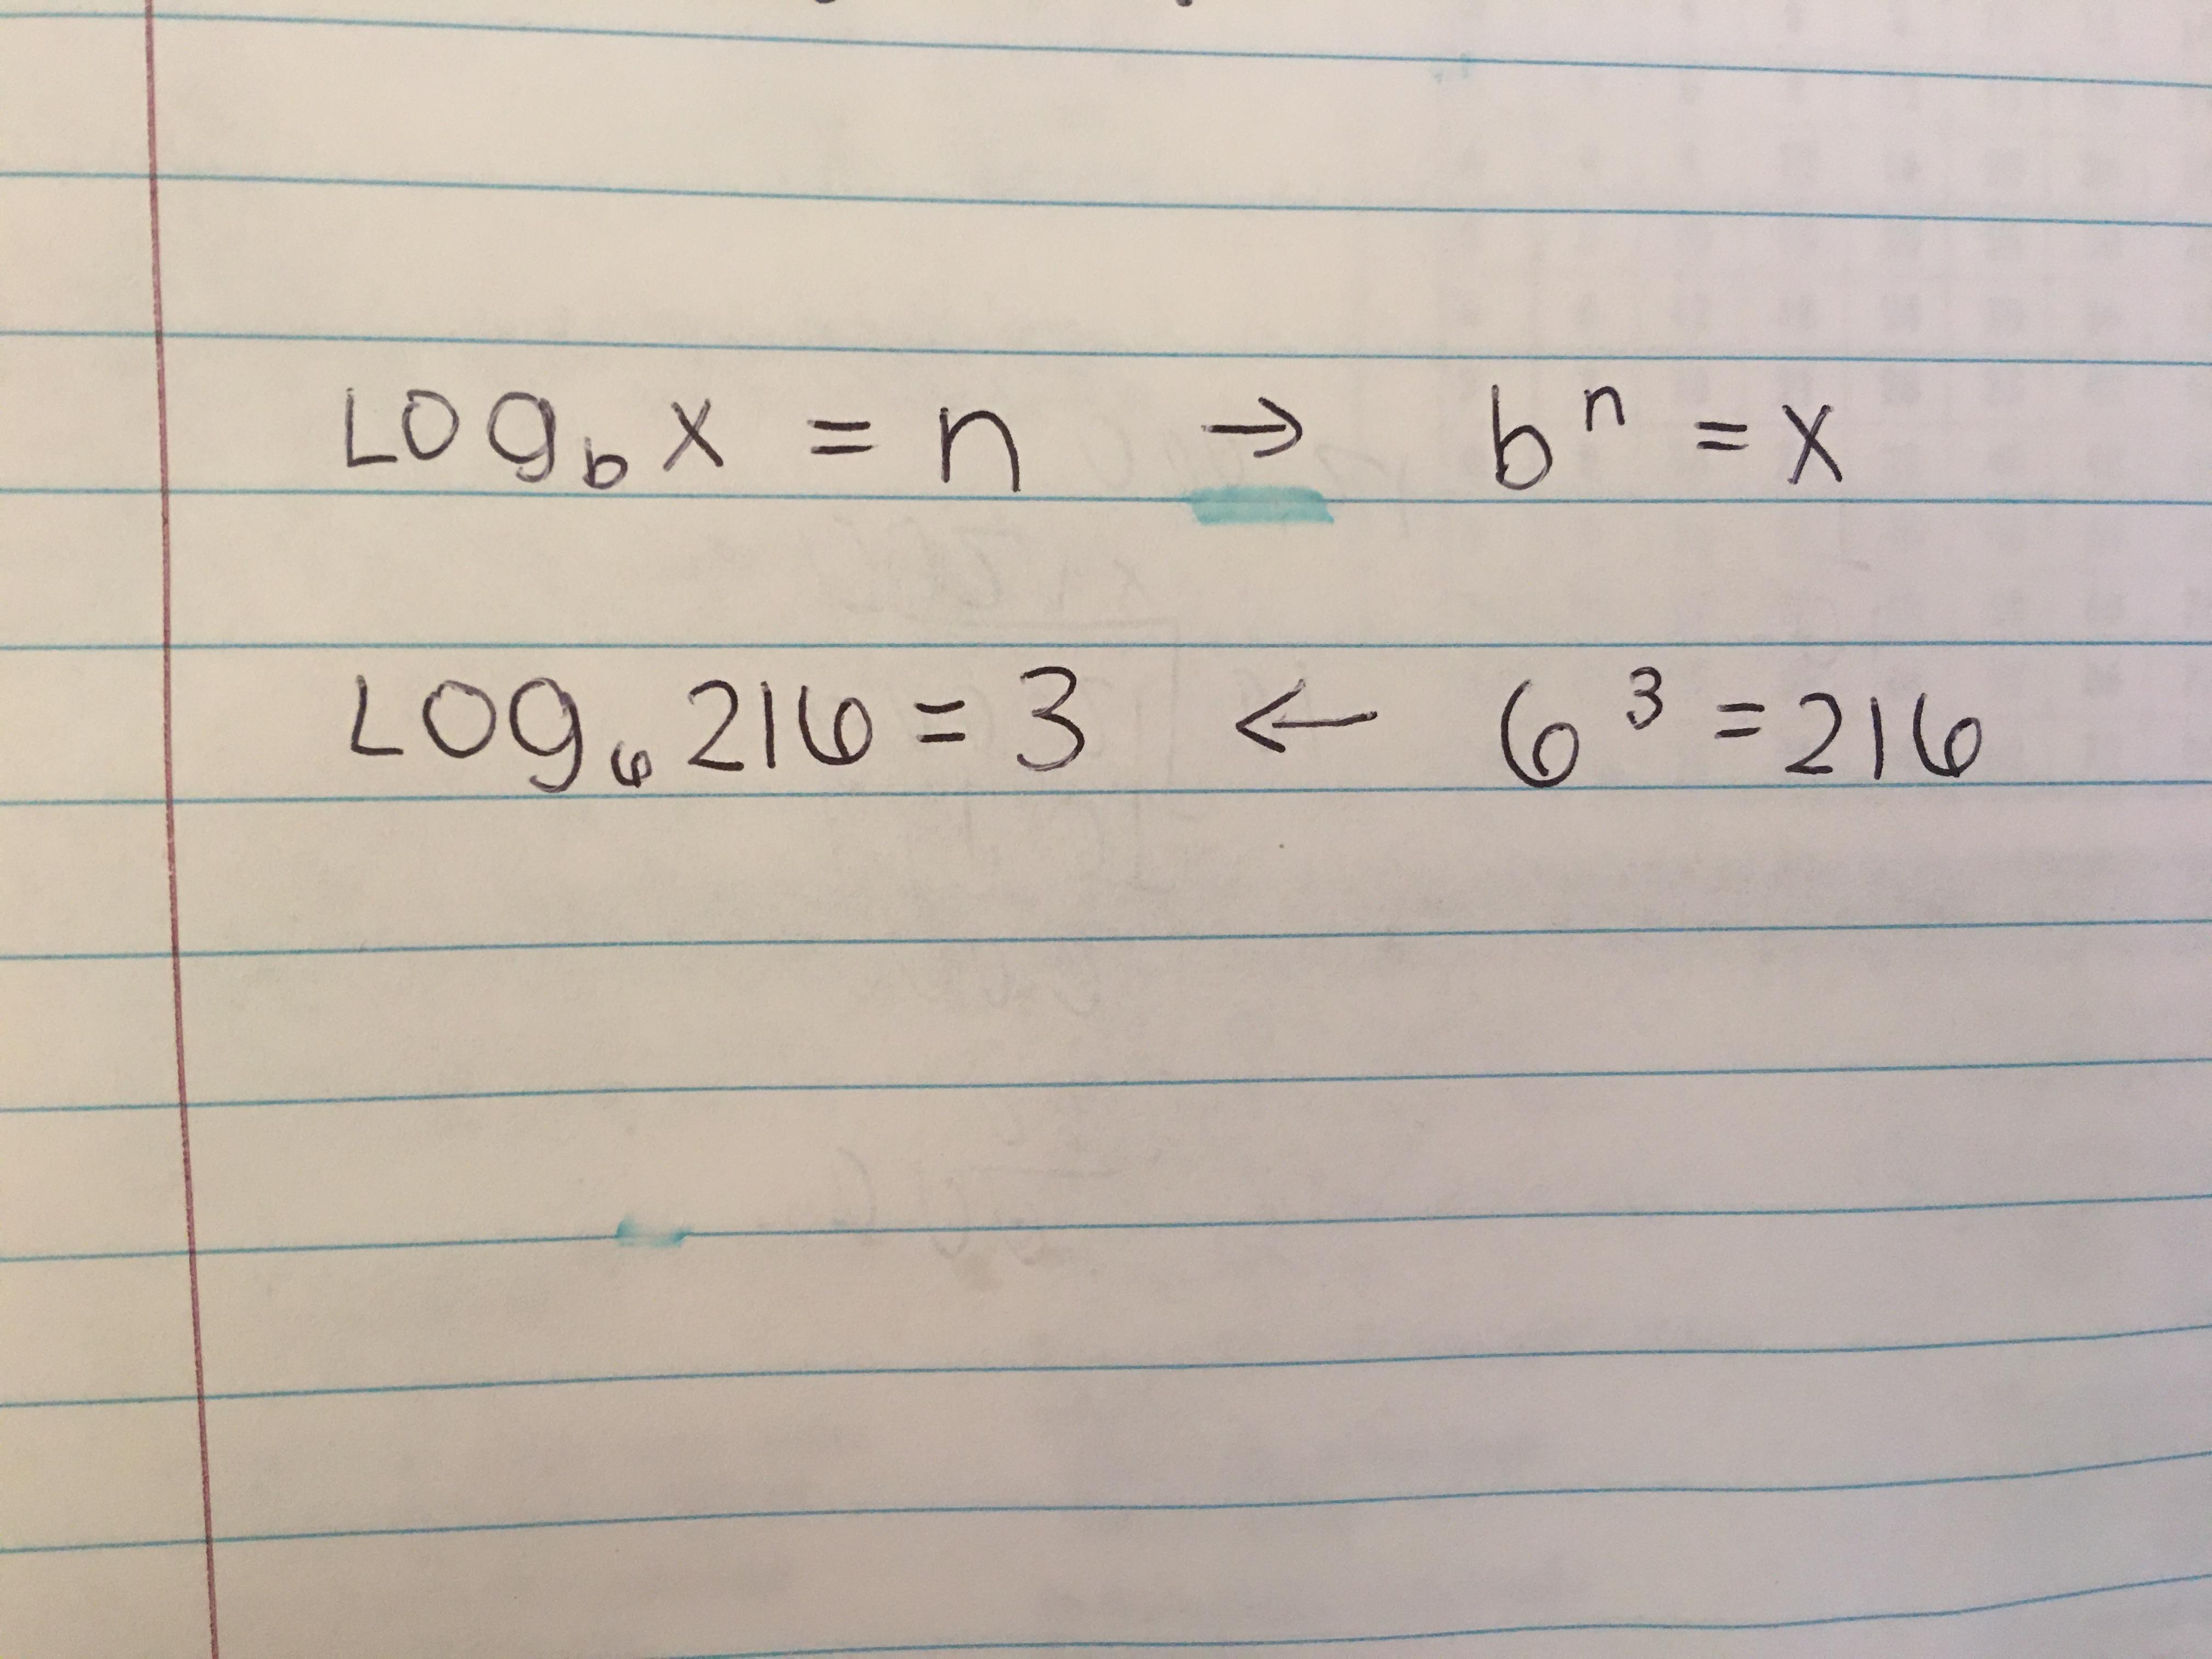 Log_b x = n → b^n = x
Log_6 216 = 3 ← 6^3 = 216